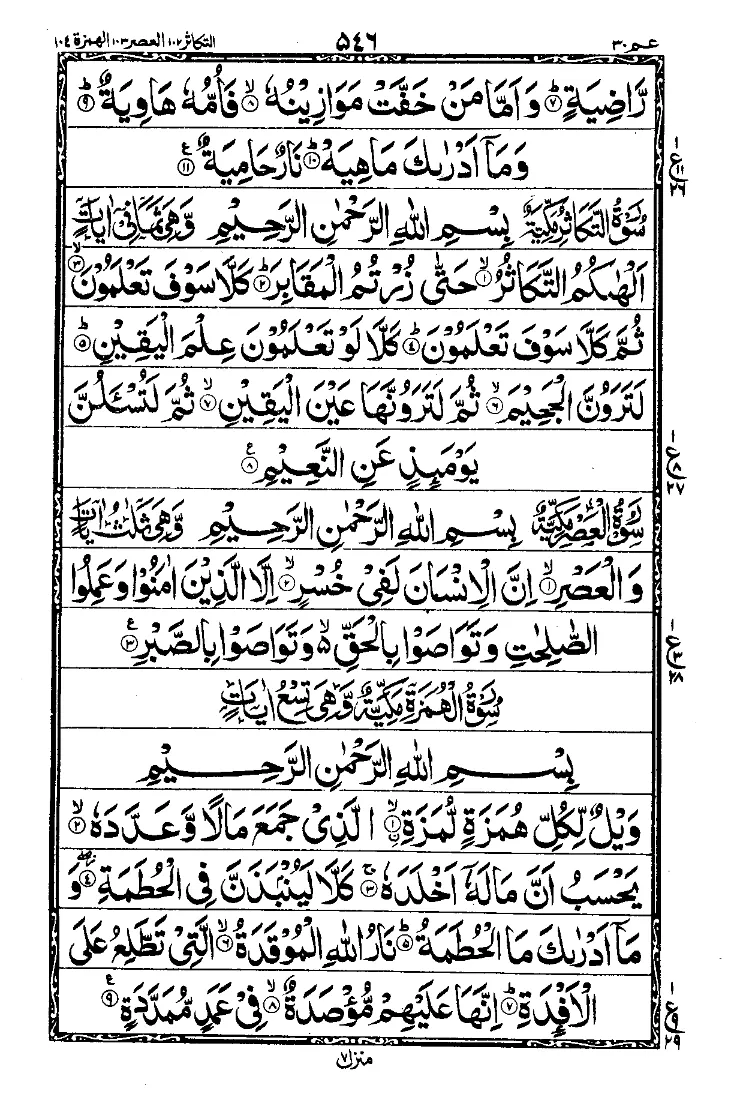 عم ٣٠ ٥٤٦ التكاثر ١٠٢ العصر ١٠٣ الهمزة ١٠٤
رَّاضِيَةٍ ؕ﴿٧﴾ وَ اَمَّا مَنْ خَفَّتْ مَوَازِيْنُهٗ ۙ﴿٨﴾ فَاُمُّهٗ هَاوِيَةٌ ؕ﴿٩﴾
وَمَاۤ اَدْرٰىكَ مَاهِيَهْ ؕ﴿١٠﴾ نَارٌ حَامِيَةٌ ﴿١١﴾ ع
سُوْرَةُ التَّكَاثُرِ مَكِّيَّةٌ بِسْمِ اللهِ الرَّحْمٰنِ الرَّحِيْمِ وَّهِیَ ثَمَانِیْ اٰيَاتٍ
اَلْهٰىكُمُ التَّكَاثُرُ ۙ﴿١﴾ حَتّٰى زُرْتُمُ الْمَقَابِرَ ؕ﴿٢﴾ كَلَّا سَوْفَ تَعْلَمُوْنَ ۙ﴿٣﴾
ثُمَّ كَلَّا سَوْفَ تَعْلَمُوْنَ ؕ﴿٤﴾ كَلَّا لَوْ تَعْلَمُوْنَ عِلْمَ الْيَقِيْنِ ؕ﴿٥﴾
لَتَرَوُنَّ الْجَحِيْمَ ۙ﴿٦﴾ ثُمَّ لَتَرَوُنَّهَا عَيْنَ الْيَقِيْنِ ۙ﴿٧﴾ ثُمَّ لَتُسْـَٔلُنَّ
يَوْمَئِذٍ عَنِ النَّعِيْمِ ﴿٨﴾ ع
سُوْرَةُ الْعَصْرِ مَكِّيَّةٌ بِسْمِ اللهِ الرَّحْمٰنِ الرَّحِيْمِ وَّهِیَ ثَلٰثُ اٰيَاتٍ
وَالْعَصْرِ ۙ﴿١﴾ اِنَّ الْاِنْسَانَ لَفِیْ خُسْرٍ ۙ﴿٢﴾ اِلَّا الَّذِيْنَ اٰمَنُوْا وَعَمِلُوا
الصّٰلِحٰتِ وَتَوَاصَوْا بِالْحَقِّ ۙ۵ وَتَوَاصَوْا بِالصَّبْرِ ﴿٣﴾ ع
سُوْرَةُ الْهُمَزَةِ مَكِّيَّةٌ وَّهِیَ تِسْعُ اٰيَاتٍ
بِسْمِ اللهِ الرَّحْمٰنِ الرَّحِيْمِ
وَيْلٌ لِّكُلِّ هُمَزَةٍ لُّمَزَةِ ۙ﴿١﴾ ۨالَّذِیْ جَمَعَ مَالًا وَّعَدَّدَهٗ ۙ﴿٢﴾
يَحْسَبُ اَنَّ مَالَهٗۤ اَخْلَدَهٗ ۚ﴿٣﴾ كَلَّا لَيُنْۢبَذَنَّ فِی الْحُطَمَةِ ۖ﴿٤﴾ وَ
مَاۤ اَدْرٰىكَ مَا الْحُطَمَةُ ؕ﴿٥﴾ نَارُ اللهِ الْمُوْقَدَةُ ۙ﴿٦﴾ الَّتِیْ تَطَّلِعُ عَلَی
الْاَفْـِٕدَةِ ؕ﴿٧﴾ اِنَّهَا عَلَيْهِمْ مُّؤْصَدَةٌ ۙ﴿٨﴾ فِیْ عَمَدٍ مُّمَدَّدَةٍ ﴿٩﴾ ع
منزل ٧